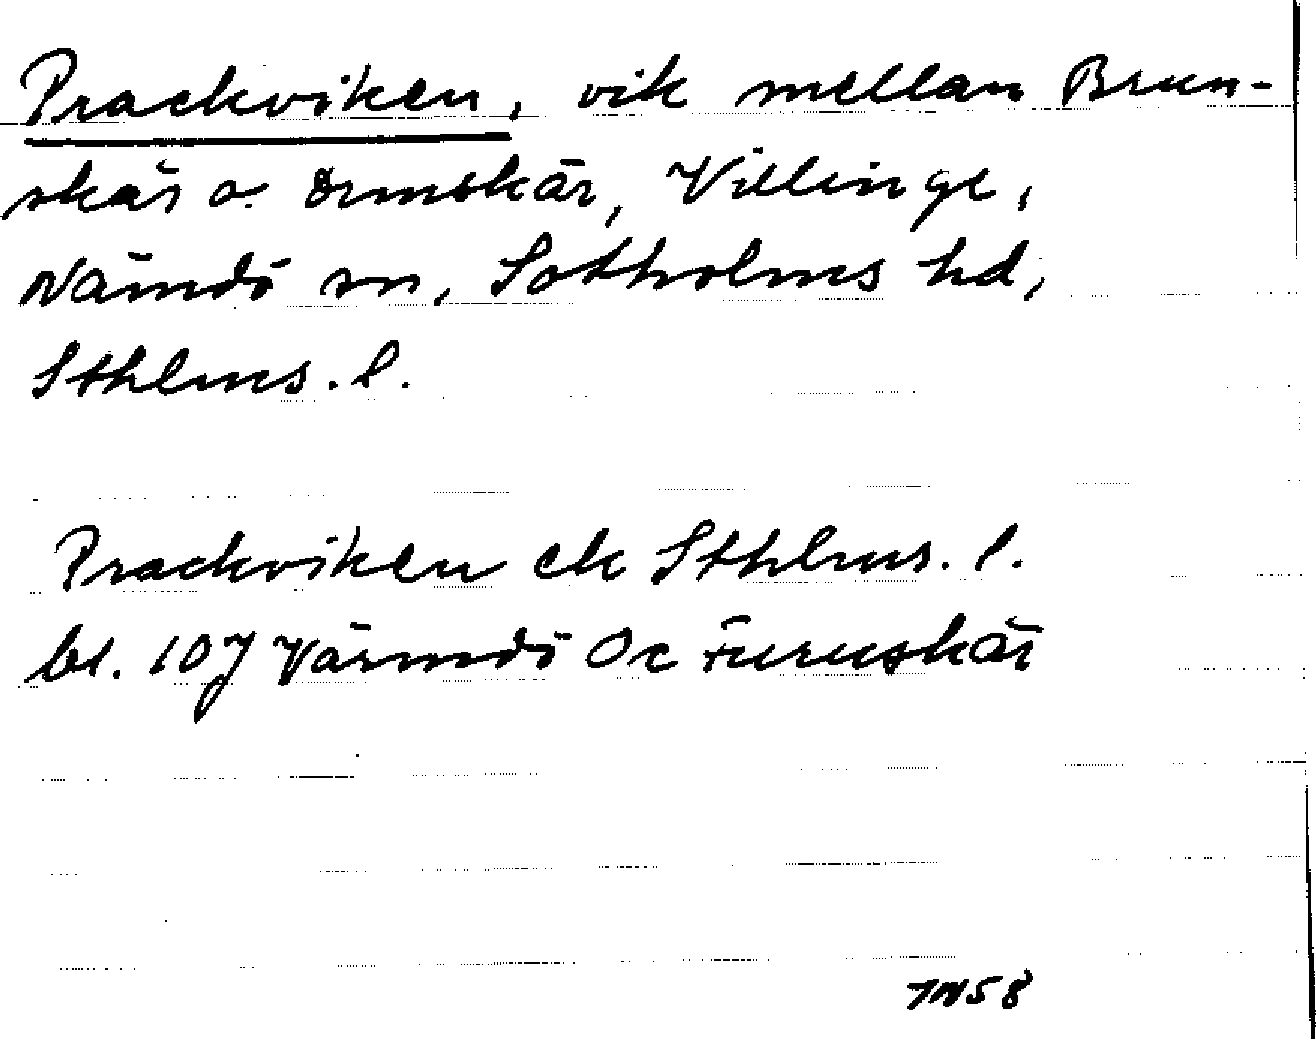 Prackviken, vik mellan Brun-
skär o. Ormskär, Villinge,
Nämdö sn, Sotholms hd,
Sthlms. l.
Prackviken ek Sthlms. l.
bl. 107 Värmdö Oc Furuskär
7N58